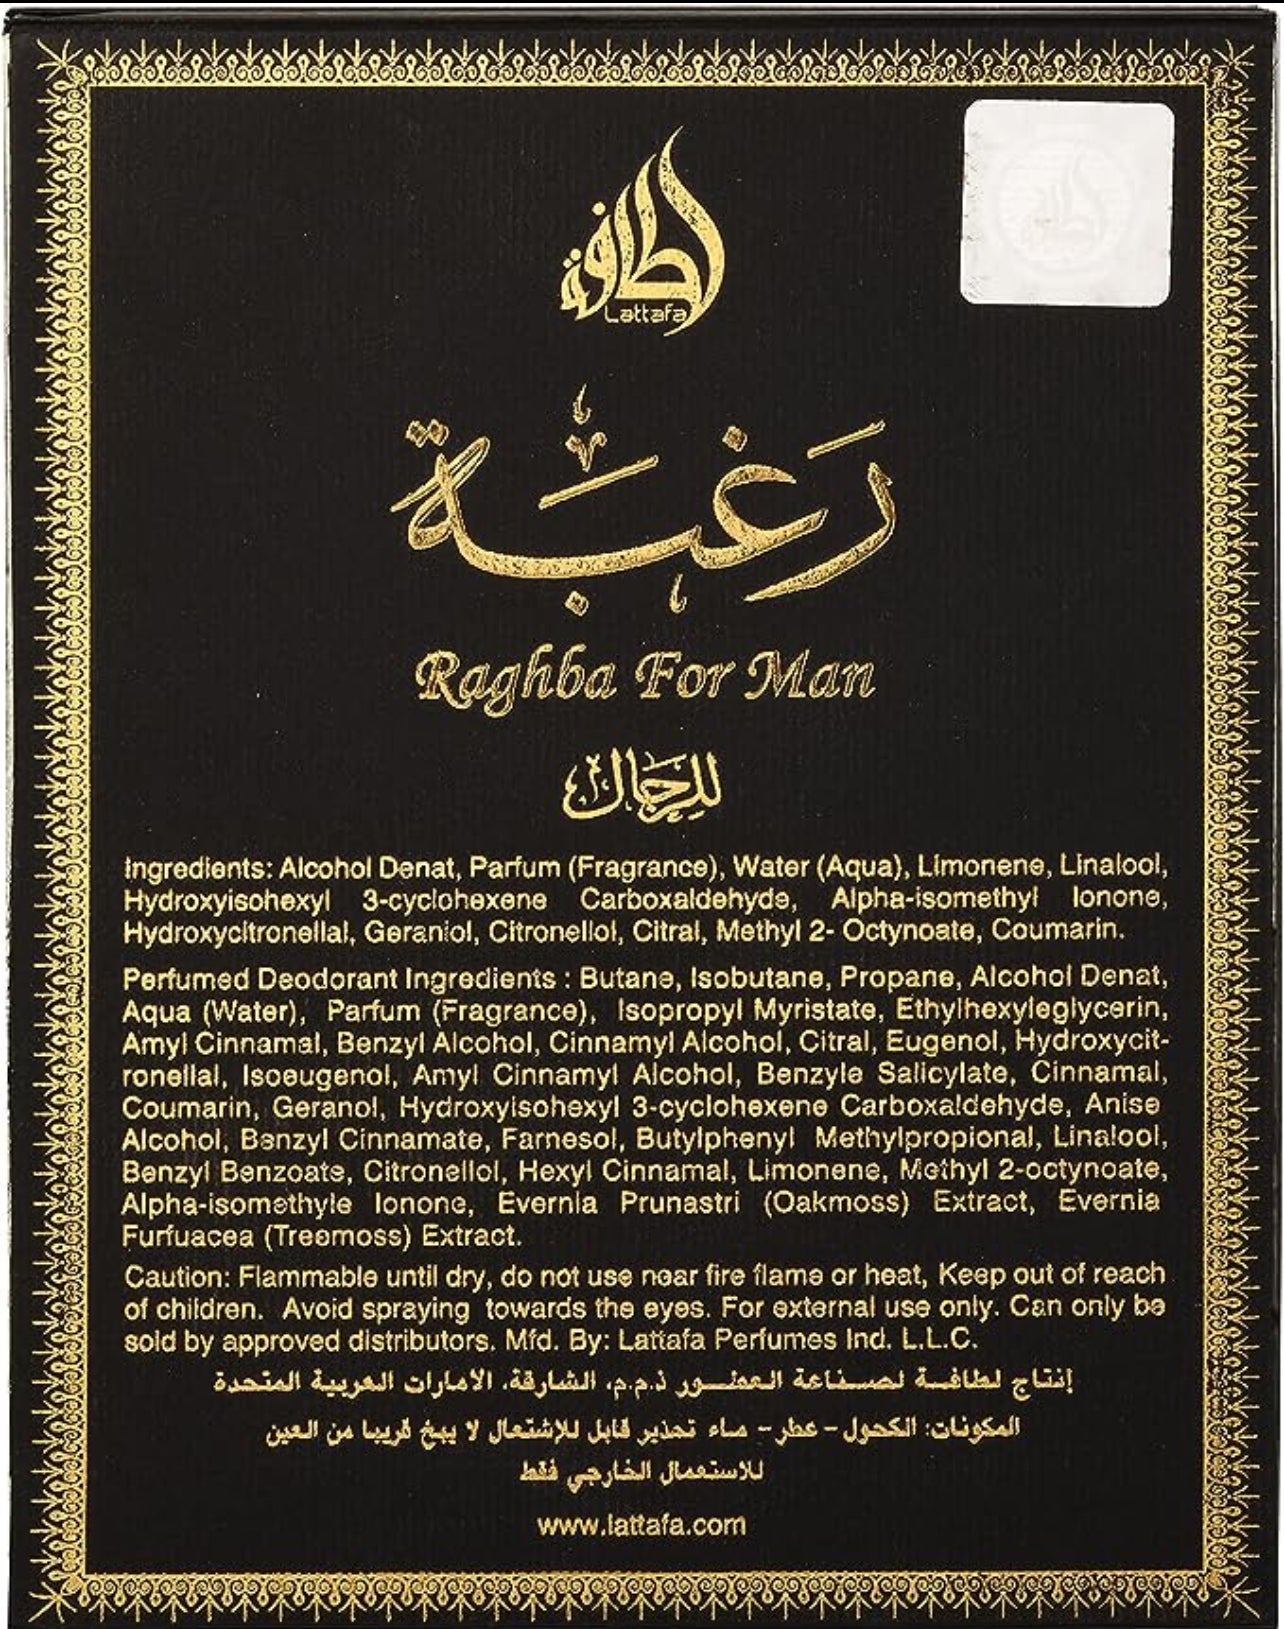 لطافة
Lattafa
رغبة
Raghba For Man
للرجال
Ingredients: Alcohol Denat, Parfum (Fragrance), Water (Aqua), Limonene, Linalool,
Hydroxyisohexyl 3-cyclohexene Carboxaldehyde, Alpha-isomethyl Ionone,
Hydroxycitronellal, Geraniol, Citronellol, Citral, Methyl 2- Octynoate, Coumarin.
Perfumed Deodorant Ingredients : Butane, Isobutane, Propane, Alcohol Denat,
Aqua (Water), Parfum (Fragrance), Isopropyl Myristate, Ethylhexyleglycerin,
Amyl Cinnamal, Benzyl Alcohol, Cinnamyl Alcohol, Citral, Eugenol, Hydroxycit-
ronellal, Isoeugenol, Amyl Cinnamyl Alcohol, Benzyle Salicylate, Cinnamal,
Coumarin, Geranol, Hydroxyisohexyl 3-cyclohexene Carboxaldehyde, Anise
Alcohol, Benzyl Cinnamate, Farnesol, Butylphenyl Methylpropional, Linalool,
Benzyl Benzoate, Citronellol, Hexyl Cinnamal, Limonene, Methyl 2-octynoate,
Alpha-isomethyle Ionone, Evernia Prunastri (Oakmoss) Extract, Evernia
Furfuacea (Treemoss) Extract.
Caution: Flammable until dry, do not use near fire flame or heat, Keep out of reach
of children. Avoid spraying towards the eyes. For external use only. Can only be
sold by approved distributors. Mfd. By: Lattafa Perfumes Ind. L.L.C.
إنتاج لطافة لصناعة العطور ذ.م.م. الشارقة. الامارات العربية المتحدة
المكونات: الكحول - عطر - ماء تحذير قابل للإشتعال لا يبخ قريبا من العين
للاستعمال الخارجي فقط
www.lattafa.com